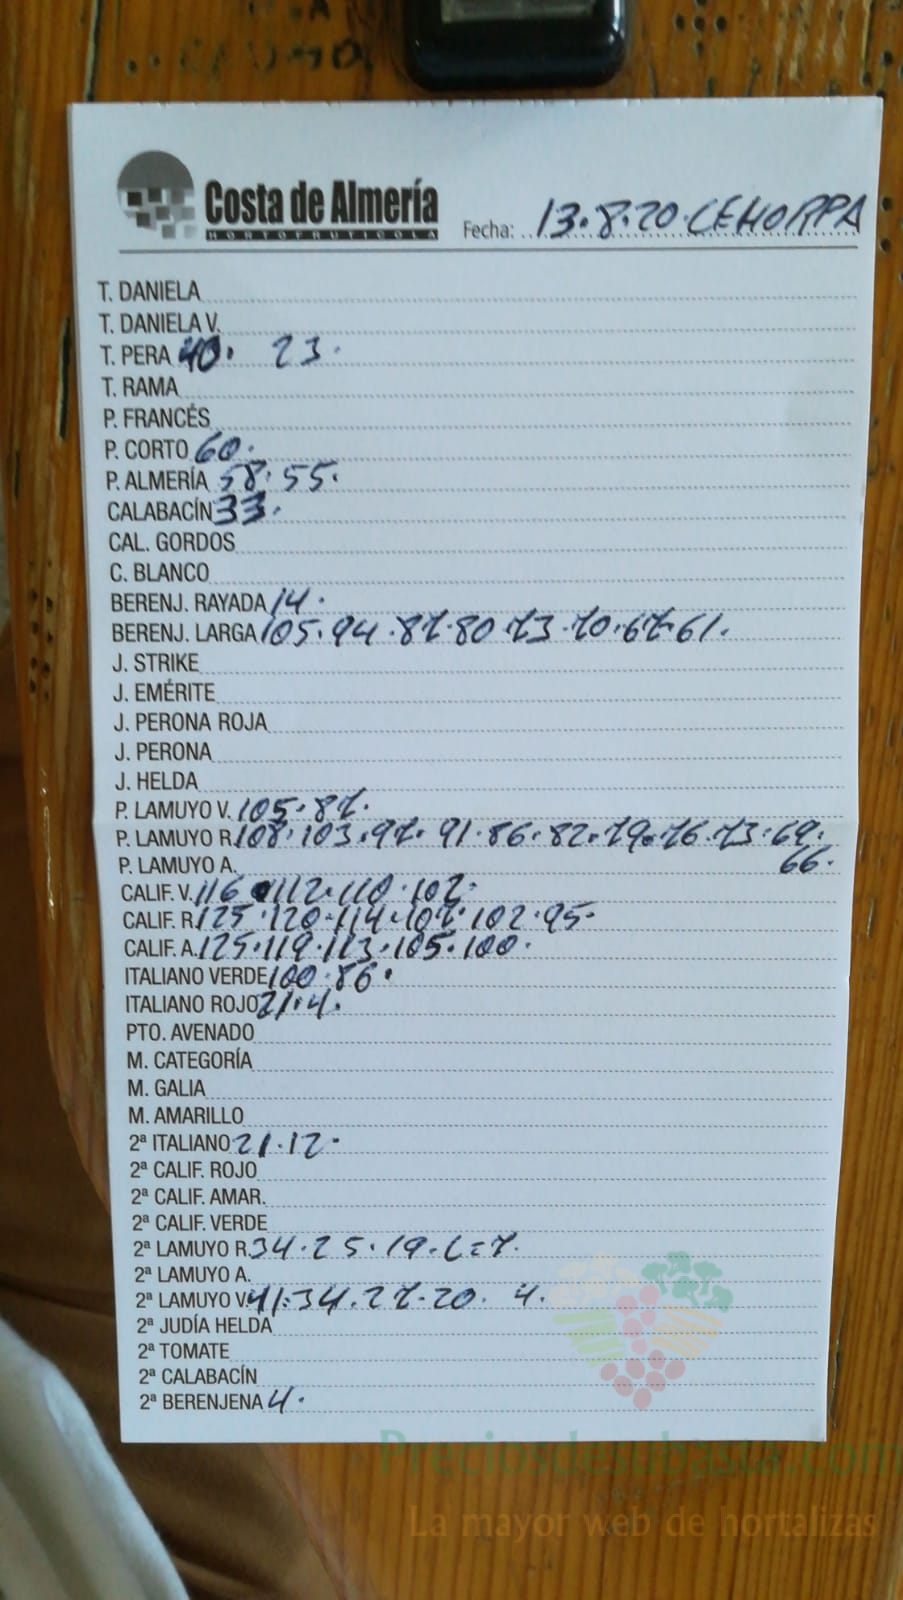 Costa de Almería
HORTOFRUTICOLA
Fecha: 13.8.20. CEHORPA
T. DANIELA
T. DANIELA V.
T. PERA 40. 23.
T. RAMA
P. FRANCÉS
P. CORTO 60.
P. ALMERÍA 58. 55.
CALABACÍN 33.
CAL. GORDOS
C. BLANCO
BERENJ. RAYADA 14.
BERENJ. LARGA 105. 94. 87. 80. 73. 70. 67. 61.
J. STRIKE
J. EMÉRITE
J. PERONA ROJA
J. PERONA
J. HELDA
P. LAMUYO V. 105. 87.
P. LAMUYO R. 108. 103. 97. 91. 86. 82. 79. 76. 73. 69.
P. LAMUYO A. 66.
CALIF. V. 116. 112. 110. 102.
CALIF. R. 125. 120. 114. 107. 102. 95.
CALIF. A. 125. 119. 113. 105. 100.
ITALIANO VERDE 100. 86.
ITALIANO ROJO 21. 4.
PTO. AVENADO
M. CATEGORÍA
M. GALIA
M. AMARILLO
2ª ITALIANO 21. 12.
2ª CALIF. ROJO
2ª CALIF. AMAR.
2ª CALIF. VERDE
2ª LAMUYO R. 34. 25. 19.
2ª LAMUYO A.
2ª LAMUYO V. 41. 34. 27. 20. 4.
2ª JUDÍA HELDA
2ª TOMATE
2ª CALABACÍN
2ª BERENJENA 4.
Preciosdesubasta.com
La mayor web de hortalizas